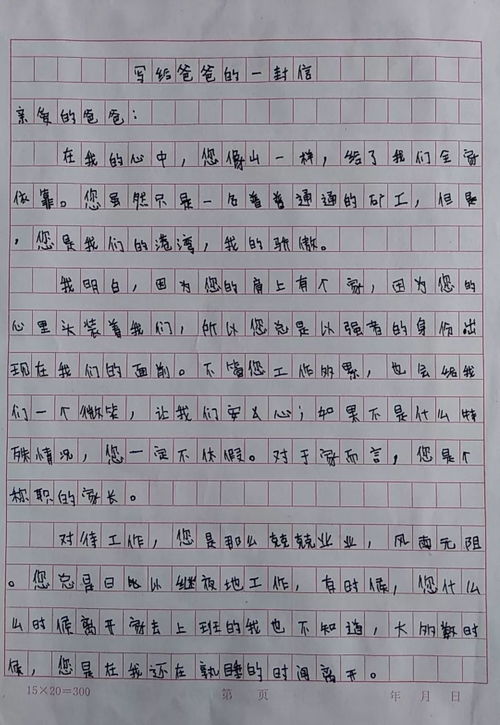 写给爸爸的一封信
亲爱的爸爸:
在我的心中，您像山一样，给了我们全家
依靠。您虽然只是一名普普通通的矿工，但是
，您是我们的港湾，我的骄傲。
我明白，因为您的肩上有个家，因为您的
心里头装着我们，所以您总是以强者的身份出
现在我们的面前。不管您工作多累，也会给我
们一个微笑，让我们安心；如果不是什么特
殊情况，您一定不休假。对于家而言，您是个
称职的家长。
对待工作，您是那么兢兢业业，风雨无阻
。您总是日以继夜地工作，有时候，您什么
么时候离开家去上班的我也不知道，大多数时
候，您是在我还在熟睡的时间离开。
15×20=300 第 页 年 月 日